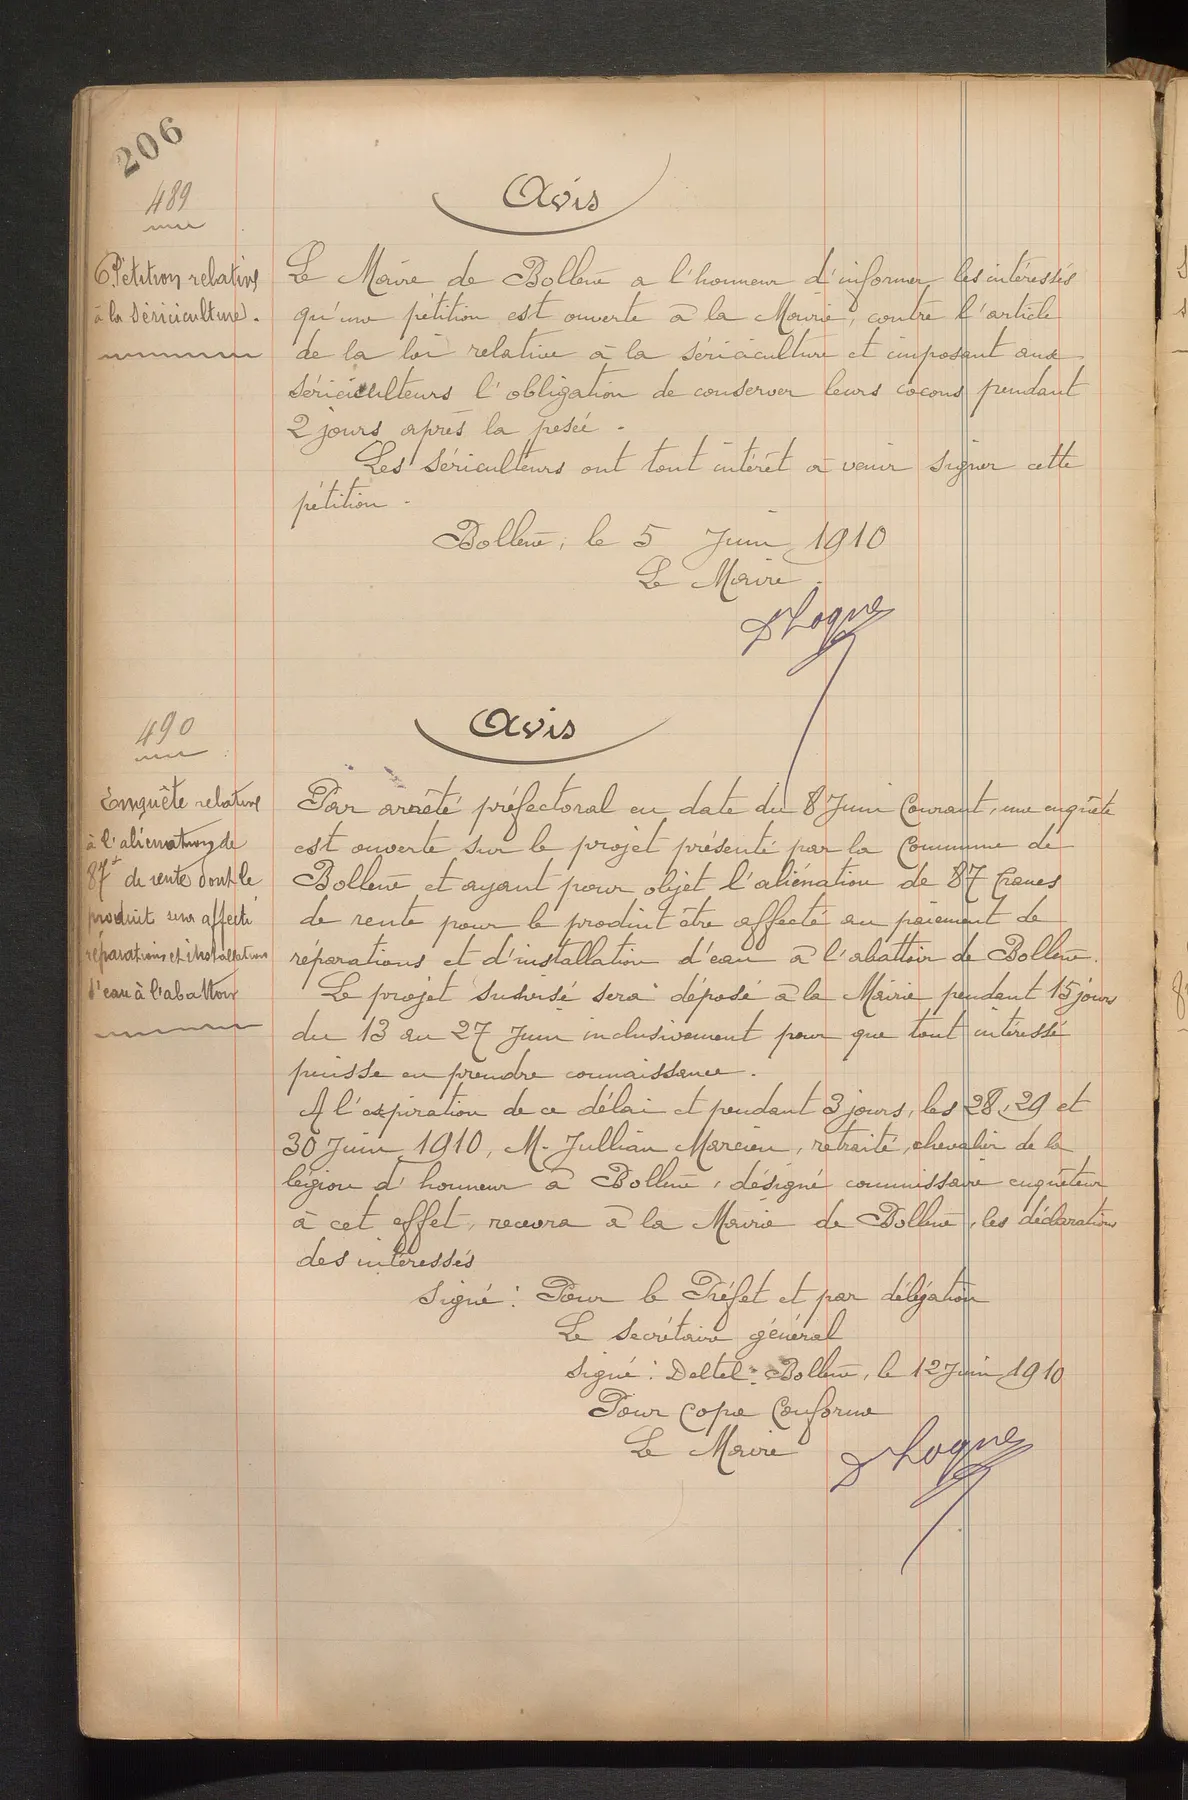 206
489
Avis
Pétition relative
à la Sériciculture.
Le Maire de Bollène a l'honneur d'informer les intéressés
qu'une pétition est ouverte à la Mairie, contre l'article
de la loi relative à la sériciculture et imposant aux
sériciculteurs l'obligation de conserver leurs cocons pendant
2 jours après la pesée.
Les sériculteurs ont tout intérêt à venir signer cette
pétition.
Bollène, le 5 Juin 1910
Le Maire.
490
Avis
Enquête relative
à l'aliénation de
87f de rente dont le
produit sera affecté
réparations et installations
d'eau à l'abattoir
Par arrêté préfectoral en date du 8 Juin Courant, une enquête
est ouverte sur le projet présenté par la Commune de
Bollène et ayant pour objet l'aliénation de 87 francs
de rente pour le produit être affecté au paiement de
réparations et d'installation d'eau à l'abattoir de Bollène.
Le projet susvisé sera déposé à la Mairie pendant 15 jours
du 13 au 27 Juin inclusivement pour que tout intéressé
puisse en prendre connaissance.
A l'expiration de ce délai et pendant 3 jours, les 28, 29 et
30 Juin 1910, M. Jullian Marcien, retraité, chevalier de la
légion d'honneur à Bollène, désigné commissaire enquêteur
à cet effet, recevra à la Mairie de Bollène, les déclarations
des intéressés
Signé : Pour le Préfet et par délégation
Le secrétaire général
signé : Deltel. Bollène, le 12 Juin 1910
Pour Copie Conforme
Le Maire